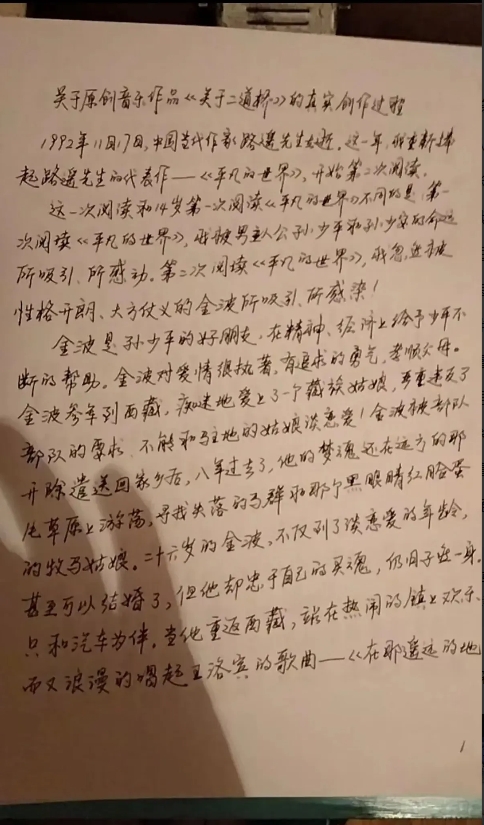 关于原创音乐作品《关于二道桥》的真实创作过程
1992年11月17日,中国当代作家路遥先生去逝,这一年,我重新捧
起路遥先生的代表作——《平凡的世界》,开始第二次阅读。
这一次阅读和14岁第一次阅读《平凡的世界》不同的是:第一
次阅读《平凡的世界》,我被男主人公孙少平和孙少安的命运
所吸引、所感动。第二次阅读《平凡的世界》,我忽然被
性格开朗、大方仗义的金波所吸引、所感染!
金波是孙少平的好朋友,在精神、经济上给予少平不
断的帮助。金波对爱情很执著,有追求的勇气,孝顺父母。
金波参军到西藏,痴迷地爱上了一个藏族姑娘,严重违反了
部队的要求,不能和驻地的姑娘谈恋爱!金波被部队
开除遣送回家乡后,八年过去了,他的梦魂还在远方的那
片草原上游荡,寻找失落的马群和那个黑眼睛红脸蛋
的牧马姑娘。二十六岁的金波,不仅到了谈恋爱的年龄,
甚至可以结婚了,但他却忠于自己的灵魂,仍旧孑然一身,
只和汽车为伴。当他重返西藏,站在热闹的镇上欢乐
而又浪漫的唱起王洛宾的歌曲——《在那遥远的地
1